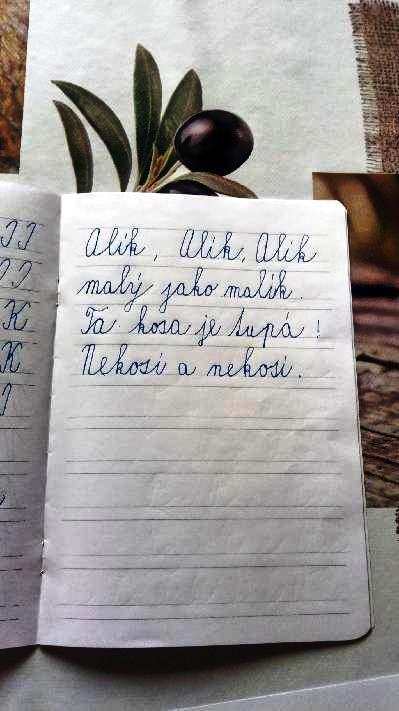 II
II
K
K
I
Alík, Alík, Alík
malý jako malík.
Ta kosa je tupá!
Nekosí a nekosí.